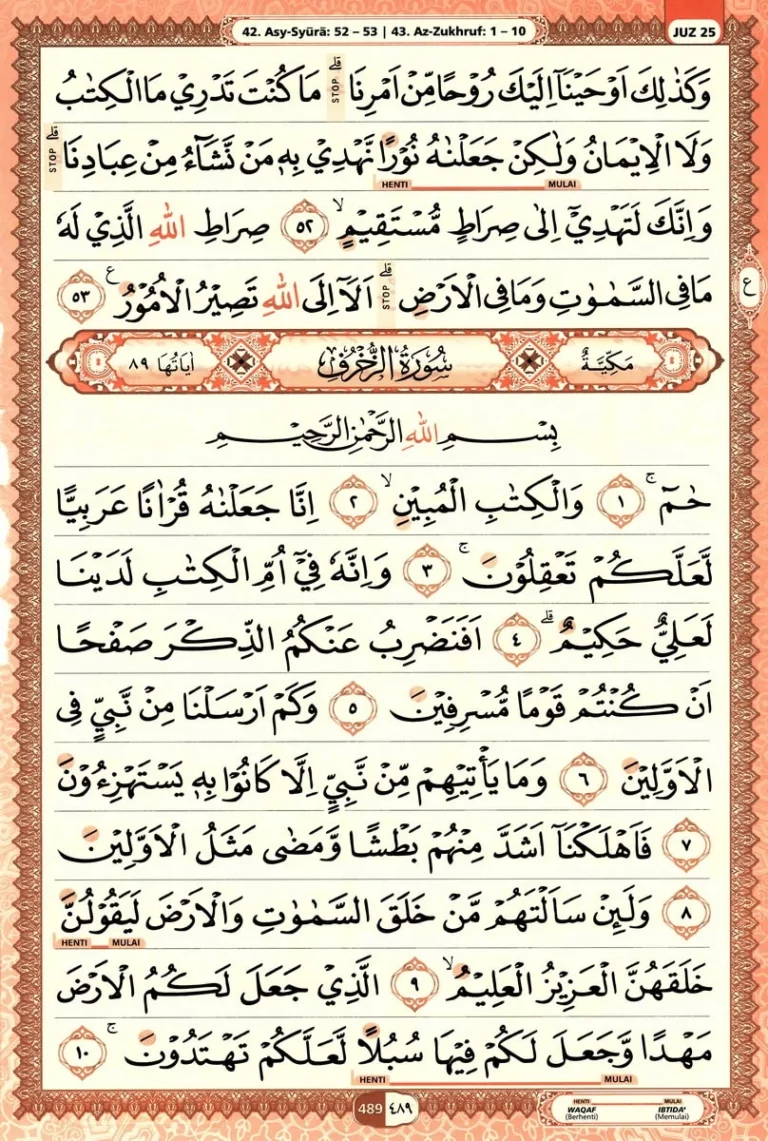 42. Asy-Syūrā: 52 – 53 | 43. Az-Zukhruf: 1 – 10
JUZ 25
وَكَذٰلِكَ اَوْحَيْنَآ اِلَيْكَ رُوْحًا مِّنْ اَمْرِنَا ۗ STOP مَا كُنْتَ تَدْرِيْ مَا الْكِتٰبُ
وَلَا الْاِيْمَانُ وَلٰكِنْ جَعَلْنٰهُ نُوْرًا نَّهْدِيْ بِهٖ مَنْ نَّشَاۤءُ مِنْ عِبَادِنَا ۗ STOP
HENTI MULAI
وَاِنَّكَ لَتَهْدِيْٓ اِلٰى صِرَاطٍ مُّسْتَقِيْمٍ ۙ ٥٢ صِرَاطِ اللّٰهِ الَّذِيْ لَهٗ
مَا فِى السَّمٰوٰتِ وَمَا فِى الْاَرْضِ ۗ STOP اَلَآ اِلَى اللّٰهِ تَصِيْرُ الْاُمُوْرُ ࣖ ٥٣
ع
مَكِّيَّةٌ سُوْرَةُ الزُّخْرُفِ اٰيَاتُهَا ٨٩
بِسْمِ اللّٰهِ الرَّحْمٰنِ الرَّحِيْمِ
حٰمۤ ۚ ١ وَالْكِتٰبِ الْمُبِيْنِ ۙ ٢ اِنَّا جَعَلْنٰهُ قُرْاٰنًا عَرَبِيًّا
لَّعَلَّكُمْ تَعْقِلُوْنَ ۚ ٣ وَاِنَّهٗ فِيْٓ اُمِّ الْكِتٰبِ لَدَيْنَا
لَعَلِيٌّ حَكِيْمٌ ۗ ٤ اَفَنَضْرِبُ عَنْكُمُ الذِّكْرَ صَفْحًا
اَنْ كُنْتُمْ قَوْمًا مُّسْرِفِيْنَ ٥ وَكَمْ اَرْسَلْنَا مِنْ نَّبِيٍّ فِى
الْاَوَّلِيْنَ ٦ وَمَا يَأْتِيْهِمْ مِّنْ نَّبِيٍّ اِلَّا كَانُوْا بِهٖ يَسْتَهْزِءُوْنَ
٧ فَاَهْلَكْنَآ اَشَدَّ مِنْهُمْ بَطْشًا وَّمَضٰى مَثَلُ الْاَوَّلِيْنَ
٨ وَلَىِٕنْ سَاَلْتَهُمْ مَّنْ خَلَقَ السَّمٰوٰتِ وَالْاَرْضَ لَيَقُوْلُنَّ
HENTI MULAI
خَلَقَهُنَّ الْعَزِيْزُ الْعَلِيْمُ ۙ ٩ الَّذِيْ جَعَلَ لَكُمُ الْاَرْضَ
مَهْدًا وَّجَعَلَ لَكُمْ فِيْهَا سُبُلًا لَّعَلَّكُمْ تَهْتَدُوْنَ ۚ ١٠
HENTI MULAI
489 ٤٨٩
HENTI MULAI
WAQAF IBTIDA'
(Berhenti) (Memulai)